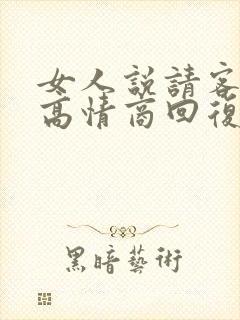 女人説請客
高情商回復
黑暗藝術